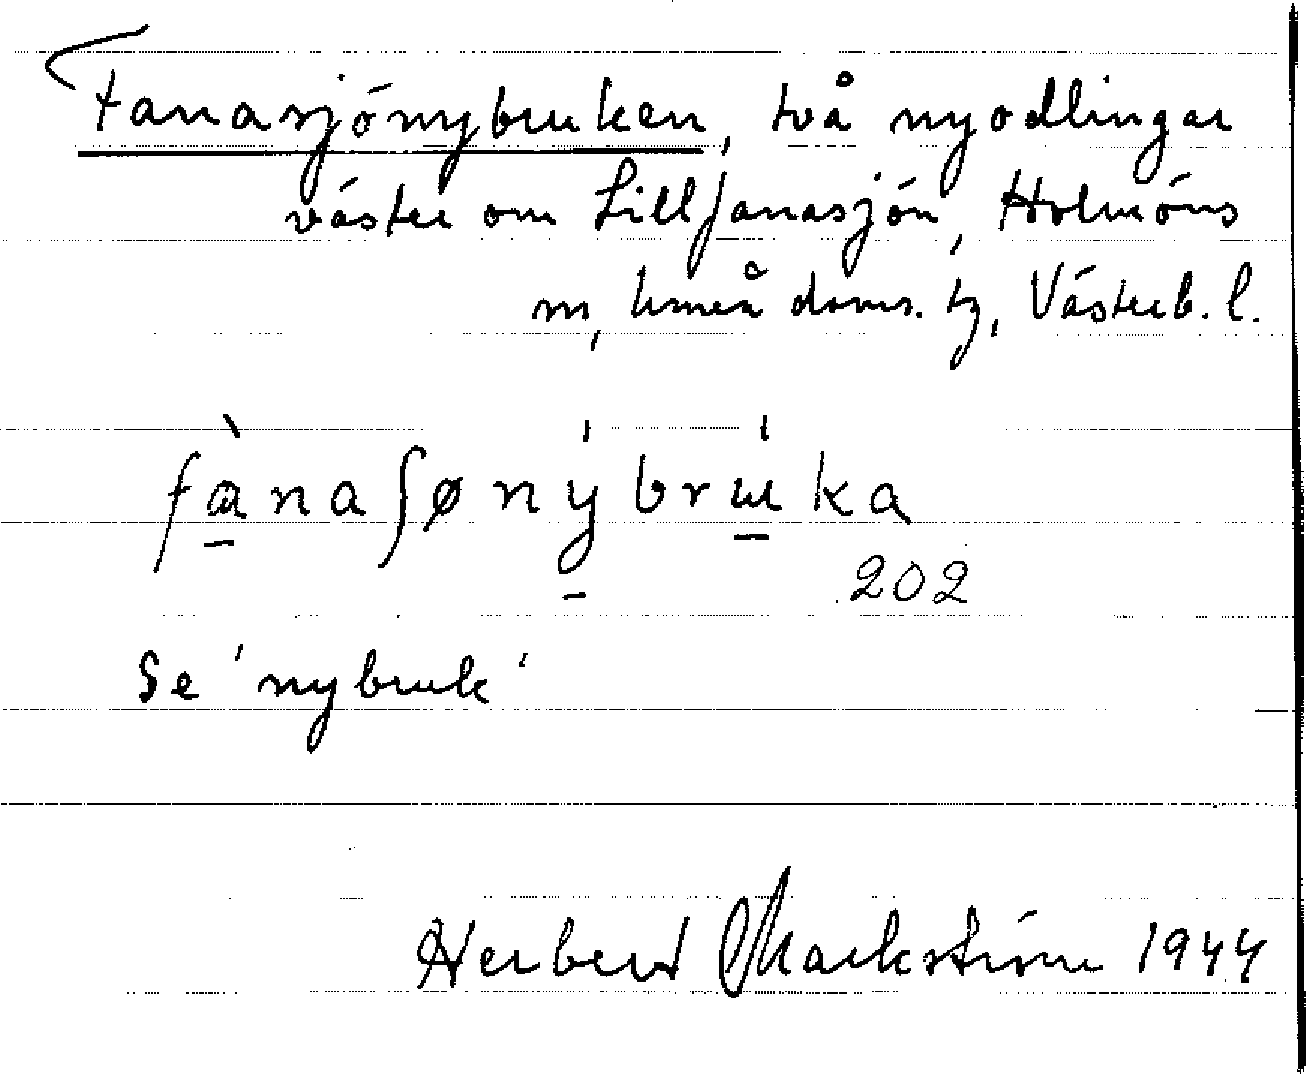 Fanasjönybruken, två nyodlingar
väster om Lillfanasjön, Holmöns
sn, Umeå doms. tg, Västerb. l.
fànaʃønýbrúka
202
Se 'nybruk'
Herbert Markström 1944